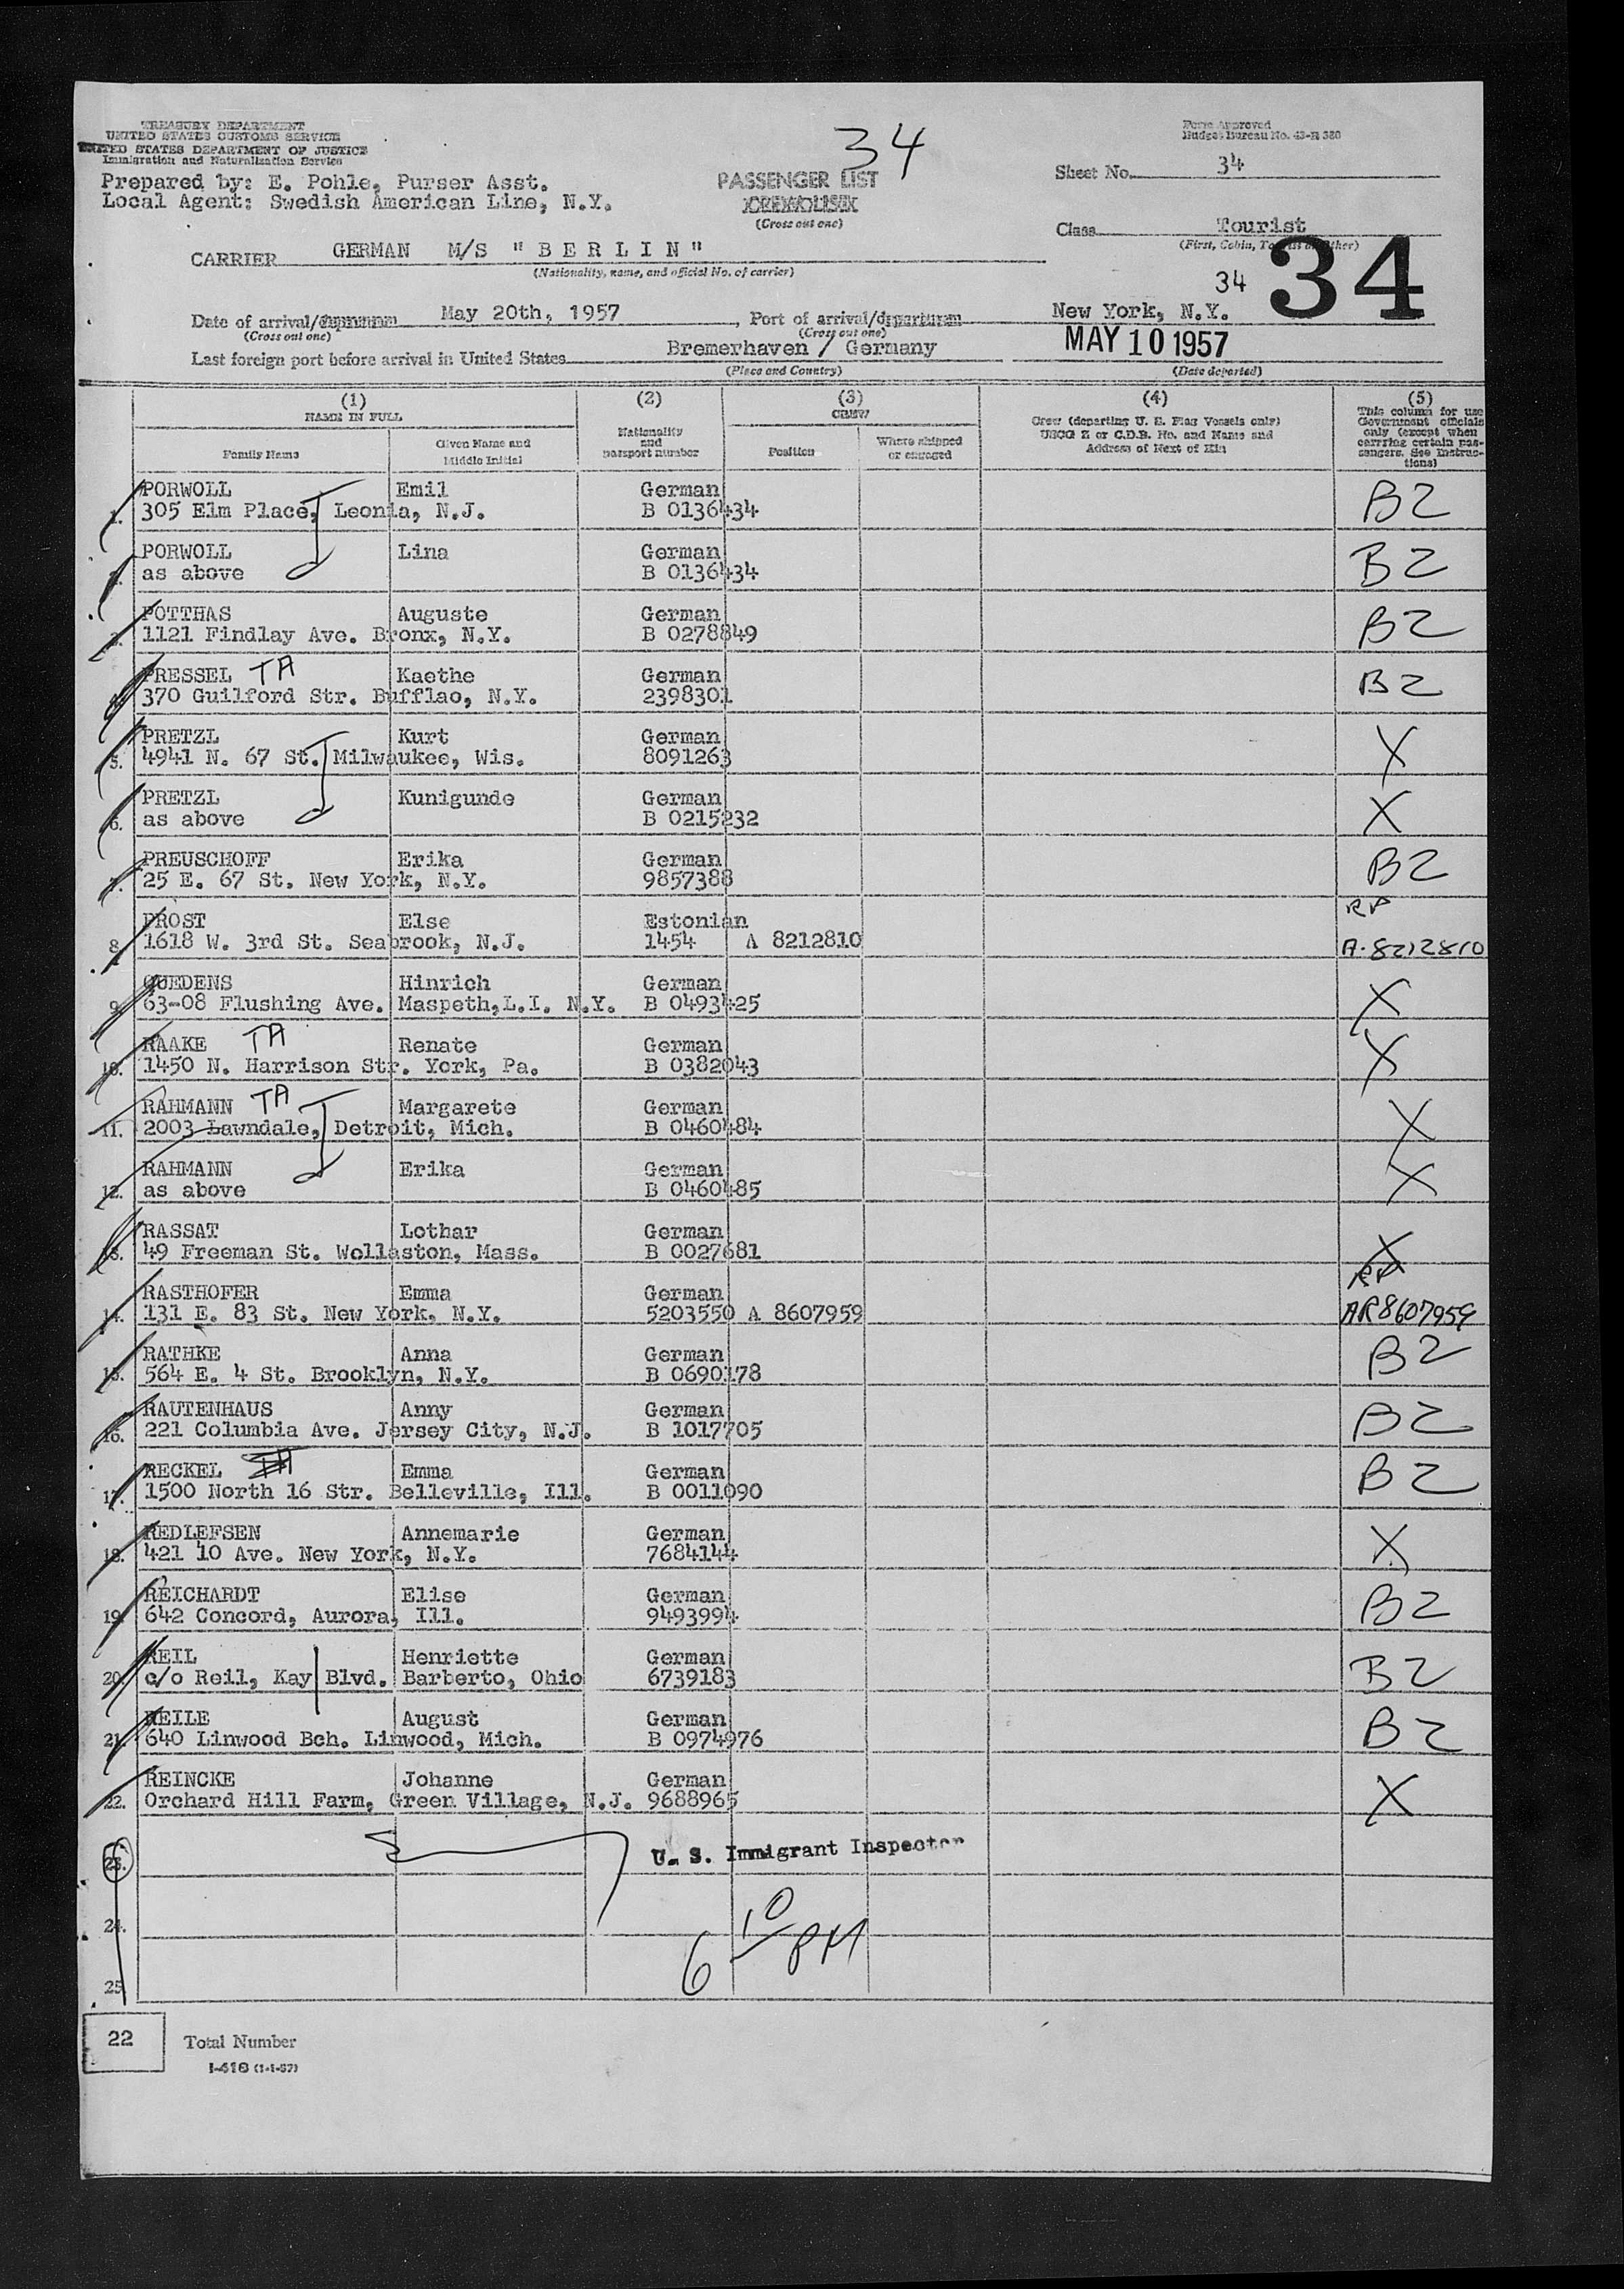 34
TREASURY DEPARTMENT
UNITED STATES CUSTOMS SERVICE
UNITED STATES DEPARTMENT OF JUSTICE
Immigration and Naturalization Service
Form Approved
Budget Bureau No. 43-R 380
Prepared by: E. Pohle, Purser Asst.
Local Agent: Swedish American Line, N.Y.
PASSENGER LIST
CREW LIST
(Cross out one)
Sheet No. 34
Class Tourist
(First, Cabin, Tourist or Other)
CARRIER GERMAN M/S "BERLIN"
(Nationality, name, and official No. of carrier)
34
34
Date of arrival/departure May 20th, 1957, Port of arrival/departure New York, N.Y.
(Cross out one) (Cross out one)
Last foreign port before arrival in United States Bremerhaven / Germany MAY 10 1957
(Place and Country) (Date departed)
(1) (2) (3) (4) (5)
NAME IN FULL
Family Name
Given Name and Middle Initial
Nationality and passport number
CREW
Position
Where shipped or engaged
Crew (departing U. S. Flag Vessels only)
USCG Z or C.D.B. No. and Name and
Address of Next of Kin
This column for use
Government officials
only (except when
carrying certain pas-
sengers. See Instruc-
tions)
1. PORWOLL Emil German B2
305 Elm Place, Leonia, N.J. B 0136434
2. PORWOLL Lina German B2
as above B 0136434
3. POTTHAS Auguste German B2
1121 Findlay Ave. Bronx, N.Y. B 0278849
4. PRESSEL TA Kaethe German B2
370 Guilford Str. Bufflao, N.Y. 2398301
5. PRETZL Kurt German X
4941 N. 67 St. Milwaukee, Wis. 8091263
6. PRETZL Kunigunde German X
as above B 0215232
7. PREUSCHOFF Erika German B2
25 E. 67 St. New York, N.Y. 9857388
8. PROST Else Estonian RP
1618 W. 3rd St. Seabrook, N.J. 1454 A 8212810 A-8212810
9. QUEDENS Hinrich German X
63-08 Flushing Ave. Maspeth,L.I. N.Y. B 0493425
10. RAAKE TA Renate German X
1450 N. Harrison Str. York, Pa. B 0382043
11. RAHMANN TA Margarete German X
2003 Lawndale, Detroit, Mich. B 0460484
12. RAHMANN Erika German X
as above B 0460485
13. RASSAT Lothar German X
49 Freeman St. Wollaston, Mass. B 0027681
14. RASTHOFER Emma German RP
131 E. 83 St. New York, N.Y. 5203550 A 8607959 AR8607959
15. RATHKE Anna German B2
564 E. 4 St. Brooklyn, N.Y. B 0690178
16. RAUTENHAUS Anny German B2
221 Columbia Ave. Jersey City, N.J. B 1017705
17. RECKEL TA Emma German B2
1500 North 16 Str. Belleville, Ill. B 0011090
18. REDLEFSEN Annemarie German X
421 10 Ave. New York, N.Y. 7684144
19. REICHARDT Elise German B2
642 Concord, Aurora, Ill. 9493994
20. REIL Henriette German B2
c/o Reil, Kay Blvd. Barberto, Ohio 6739183
21. REILE August German B2
640 Linwood Bch. Linwood, Mich. B 0974976
22. REINCKE Johanne German X
Orchard Hill Farm, Green Village, N.J. 9688965
23.
U. S. Immigrant Inspector
24.
6 10 PM
25.
22 Total Number
I-418 (1-1-57)